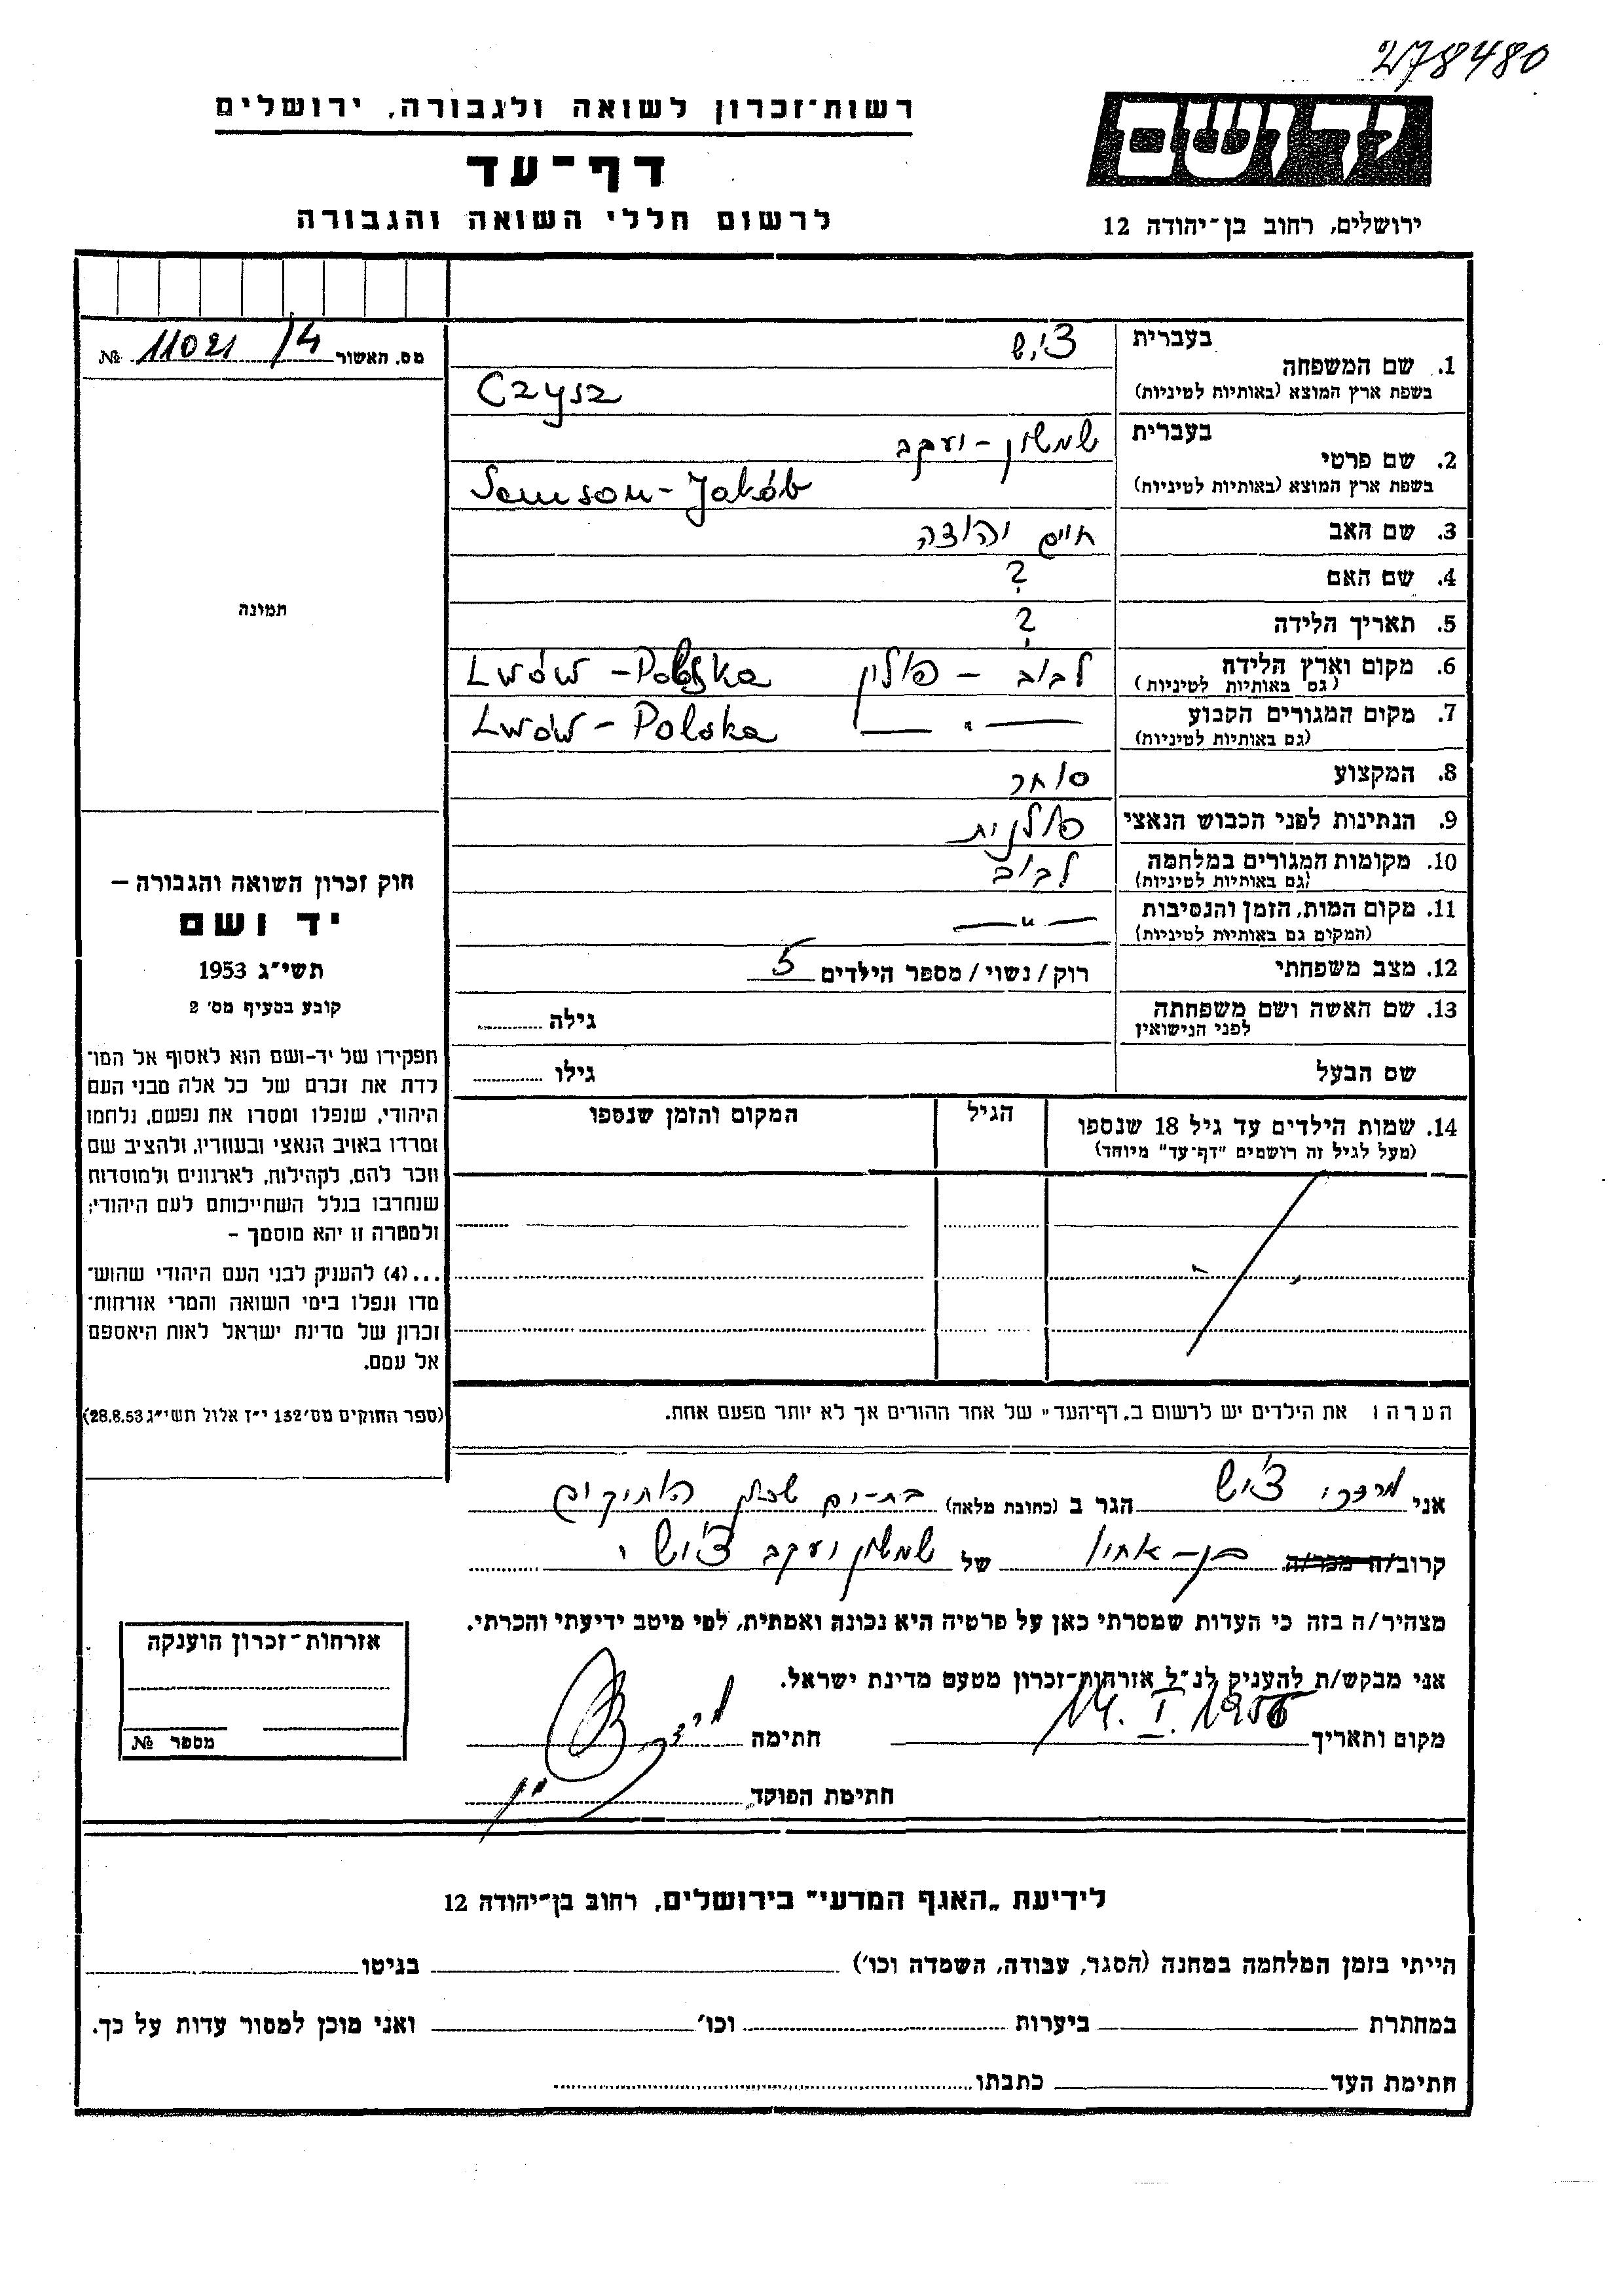 278480
רשות־זכרון לשואה ולגבורה, ירושלים
דף־עד
לרשום חללי השואה והגבורה
ידושם
ירושלים, רחוב בן־יהודה 12
מס. האשור 11021/4 №
תמונה
חוק זכרון השואה והגבורה –
יד ושם
תשי״ג 1953
קובע בסעיף מס׳ 2
תפקידו של יד-ושם הוא לאסוף אל המו־
לדת את זכרם של כל אלה מבני העם
היהודי, שנפלו ומסרו את נפשם, נלחמו
ומרדו באויב הנאצי ובעוזריו, ולהציב שם
וזכר להם, לקהילות, לארגונים ולמוסדות
שנחרבו בגלל השתייכותם לעם היהודי;
ולמטרה זו יהא מוסמך –
...(4) להעניק לבני העם היהודי שהוש־
מדו ונפלו בימי השואה והמרי אזרחות־
זכרון של מדינת ישראל לאות היאספם
אל עמם.
(ספר החוקים מס׳ 132 י״ז אלול תשי״ג 28.8.53)
בעברית צ׳יש
1. שם המשפחה
בשפת ארץ המוצא (באותיות לטיניות) Czysz
בעברית שמשון - יעקב
2. שם פרטי
בשפת ארץ המוצא (באותיות לטיניות) Samson - Jakób
3. שם האב חיים יהודה
4. שם האם ?
5. תאריך הלידה ?
6. מקום וארץ הלידה לבוב - פולין Lwów - Polska
(גם באותיות לטיניות)
7. מקום המגורים הקבוע — " — Lwów - Polska
(גם באותיות לטיניות)
8. המקצוע סוחר
9. הנתינות לפני הכבוש הנאצי פולנית
10. מקומות המגורים במלחמה לבוב
(גם באותיות לטיניות)
11. מקום המות, הזמן והנסיבות — " —
(המקום גם באותיות לטיניות)
12. מצב משפחתי רוק / נשוי / מספר הילדים 5
13. שם האשה ושם משפחתה גילה
לפני הנישואין
שם הבעל גילו
14. שמות הילדים עד גיל 18 שנספו הגיל המקום והזמן שנספו
(מעל לגיל זה רושמים "דף־עד" מיוחד)
הערה: את הילדים יש לרשום ב„דף־העד" של אחד ההורים אך לא יותר מפעם אחת.
אני מרדכי צ׳יש הגר ב (כתובת מלאה) בת-ים שכון הותיקים
קרוב/ה מכר/ה בן-אחיו של שמשון יעקב צ׳יש
מצהיר/ה בזה כי העדות שמסרתי כאן על פרטיה היא נכונה ואמתית, לפי מיטב ידיעתי והכרתי.
אני מבקש/ת להעניק לנ״ל אזרחות-זכרון מטעם מדינת ישראל.
מקום ותאריך 14. I. 1956 חתימה
חתימת הפוקד
אזרחות־זכרון הוענקה
מספר №
לידיעת „האגף המדעי" בירושלים, רחוב בן־יהודה 12
הייתי בזמן המלחמה במחנה (הסגר, עבודה, השמדה וכו׳) בגיטו
במחתרת ביערות וכו׳ ואני מוכן למסור עדות על כך.
חתימת העד כתבתו